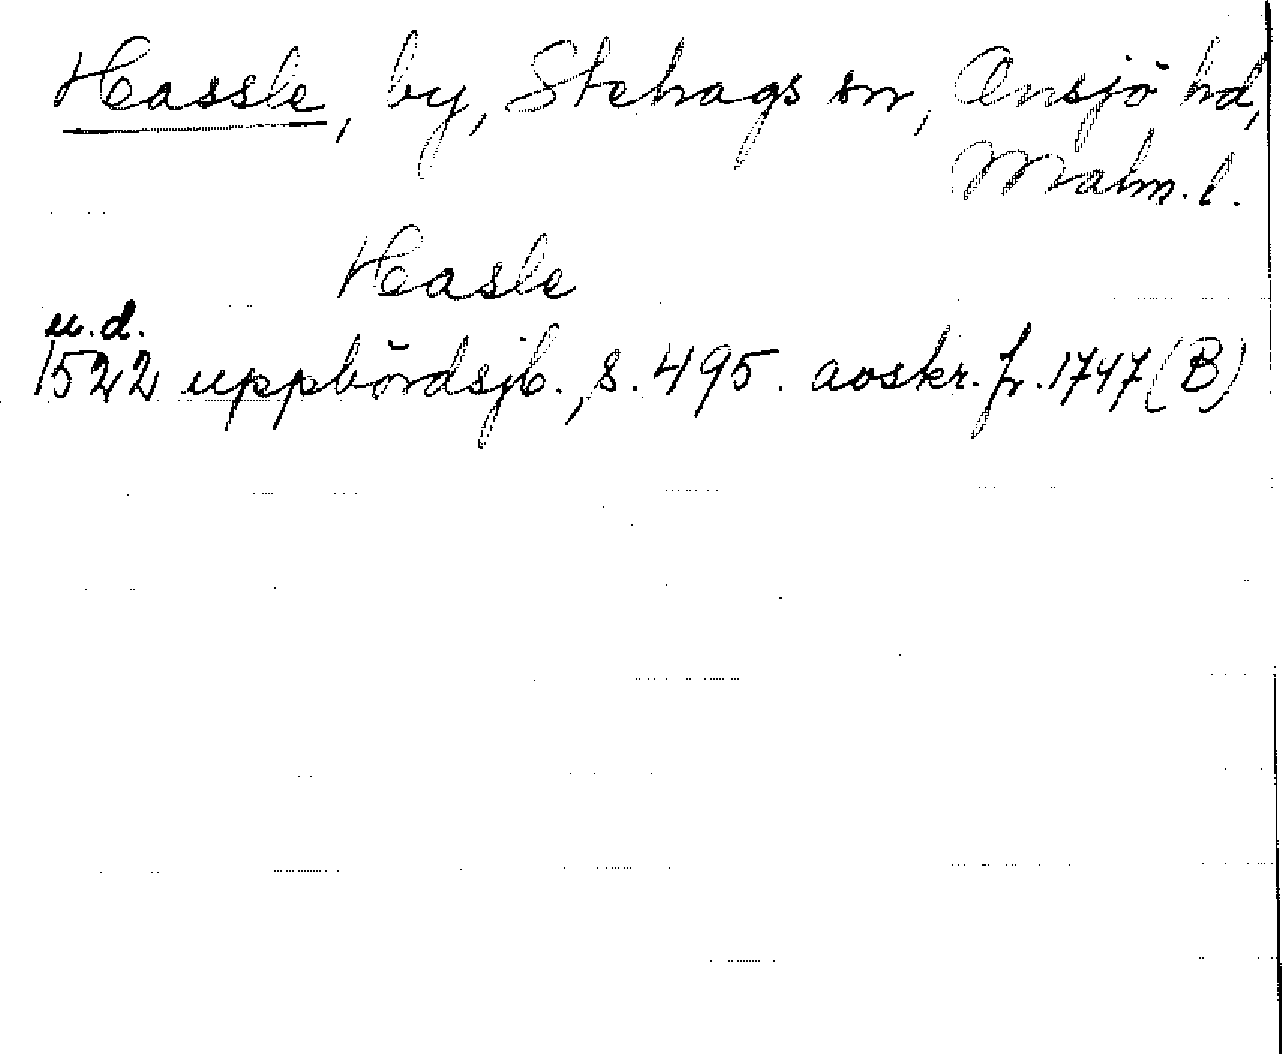 Hassle, by, Stehags sn, Onsjö hd,
Malm. l.
Hasle
u.d.
1522 uppbördsjb., s. 495. avskr. fr. 1747 (B)